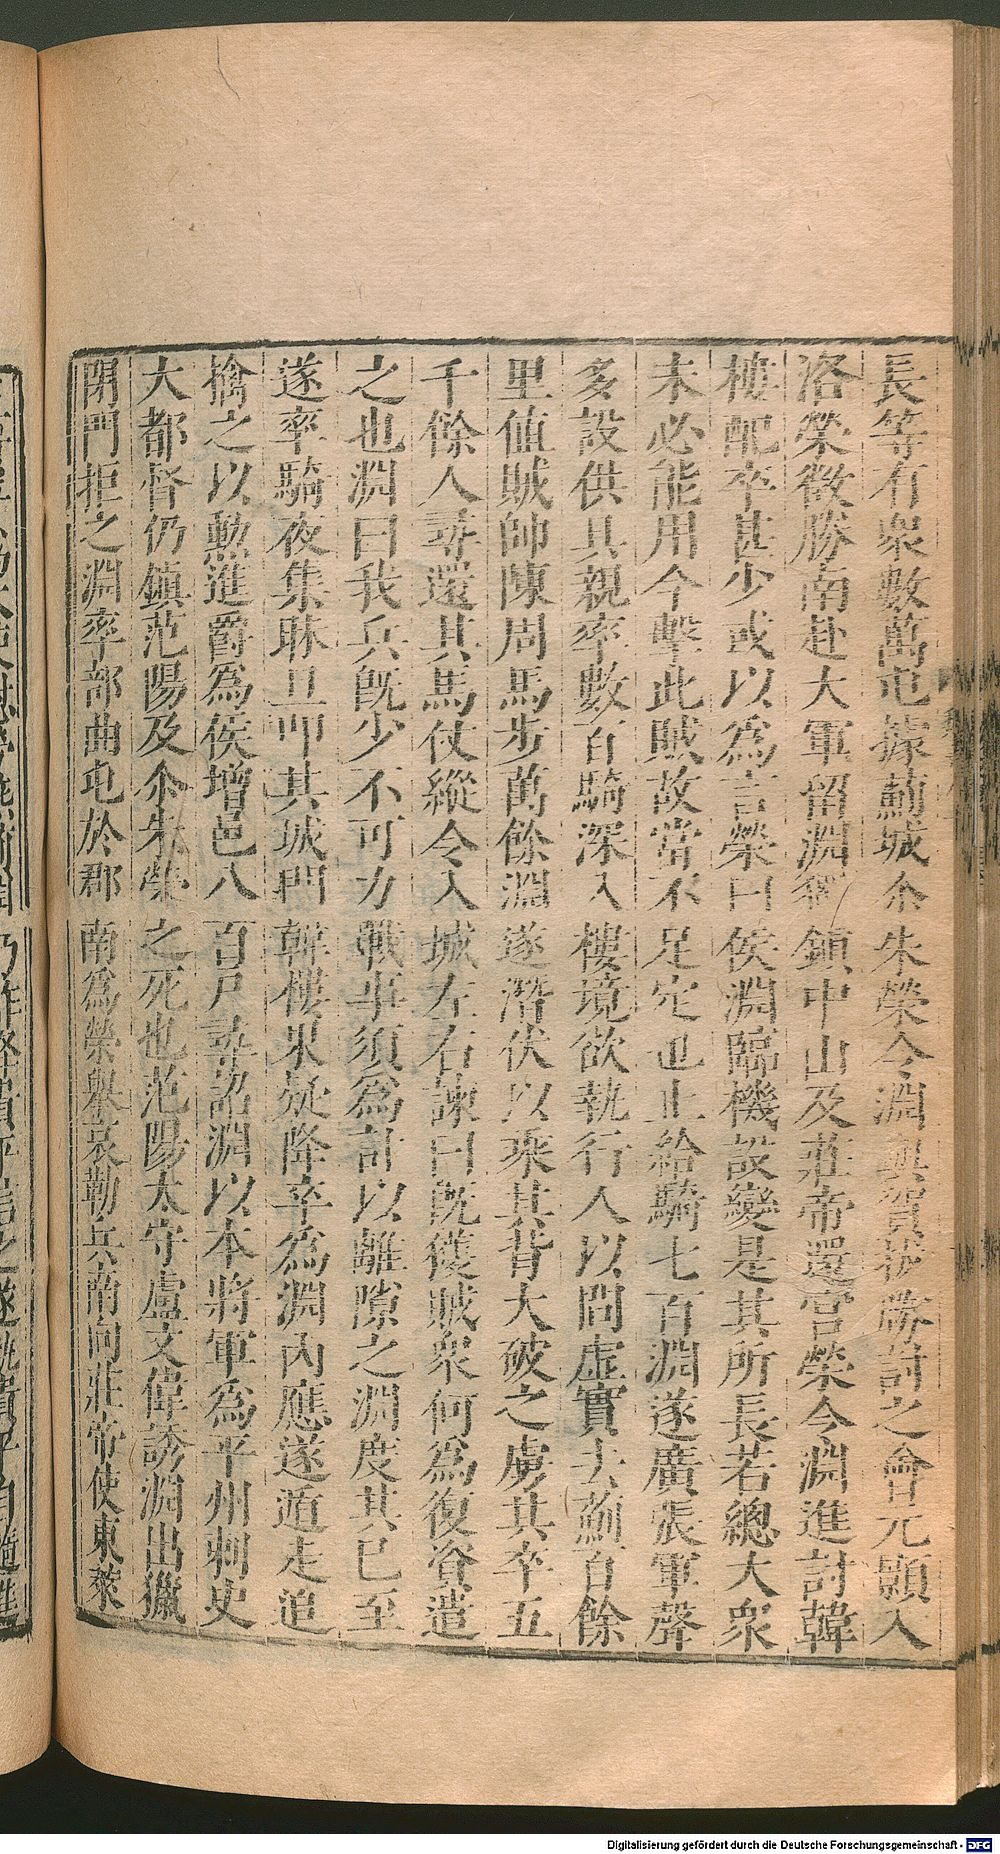 長等有眾數萬屯據薊城尒朱榮令淵與賀拔勝討之會元顥入
洛榮徵勝南赴大軍留淵獨鎮中山及莊帝還宮榮令淵進討韓
樓配卒甚少或以為言榮曰侯淵臨機設變是其所長若總大眾
未必能用今擊此賊故當不足定也止給騎七百淵遂廣張軍聲
多設供具親率數百騎深入樓境欲執行人以問虛實去薊百餘
里值賊帥陳周馬步萬餘淵遂潛伏以乘其背大破之虜其卒五
千餘人尋還其馬仗縱令入城左右諫曰既獲賊眾何為復資遣
之也淵曰我兵既少不可力戰事須為計以離隙之淵度其已至
遂率騎夜集昧旦叩其城門韓樓果疑降卒為淵內應遂遁走追
擒之以勳進爵為侯增邑八百戶尋詔淵以本將軍為平州刺史
大都督仍鎮范陽及尒朱榮之死也范陽太守盧文偉誘淵出獵
閉門拒之淵率部曲屯於郡南為榮舉哀勒兵南向莊帝使東萊
Digitalisierung gefördert durch die Deutsche Forschungsgemeinschaft - DFG